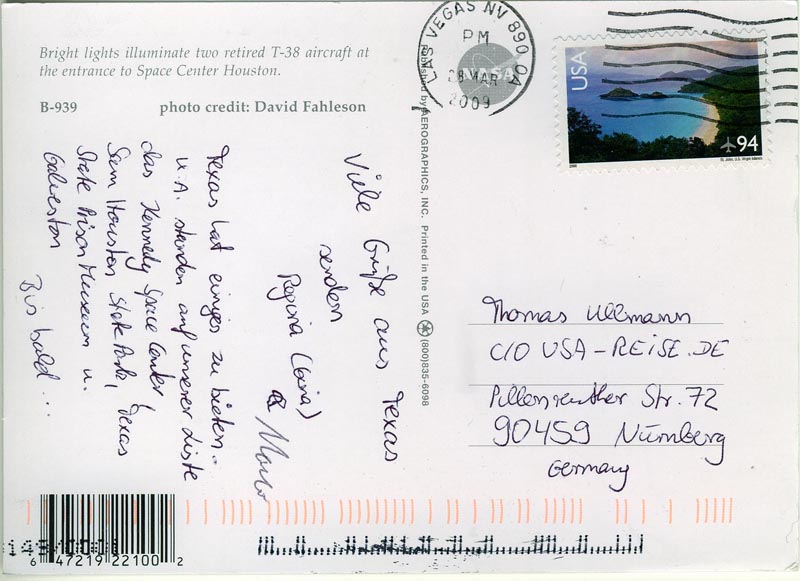 Bright lights illuminate two retired T-38 aircraft at
the entrance to Space Center Houston.
B-939 photo credit: David Fahleson
Viele Grüße aus Texas
senden
Regina (Gina)
&
Texas hat einiges zu bieten..
u.A. standen auf unserer Liste
das Kennedy Space Center,
Sam Houston State Park, Texas
State Prison Museum u.
Galveston
Bis bald ...
Published by AEROGRAPHICS, INC. Printed in the USA (800)835-6098
LAS VEGAS NV 890
PM
28 MAR
2009
USA
94
St. John, U.S. Virgin Islands
Thomas Ullmann
C/O USA-REISE.DE
Pillenreuther Str. 72
90459 Nürnberg
Germany
6 47219 22100 2